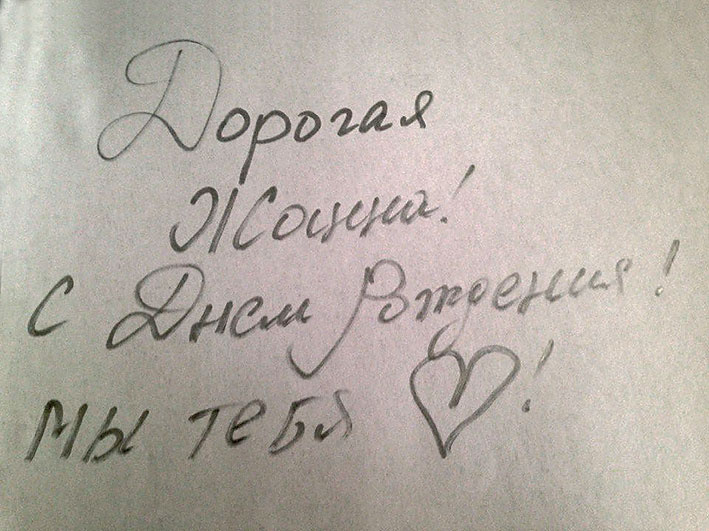 Дорогая
Жанна!
С Днем Рождения!
мы тебя ♡!